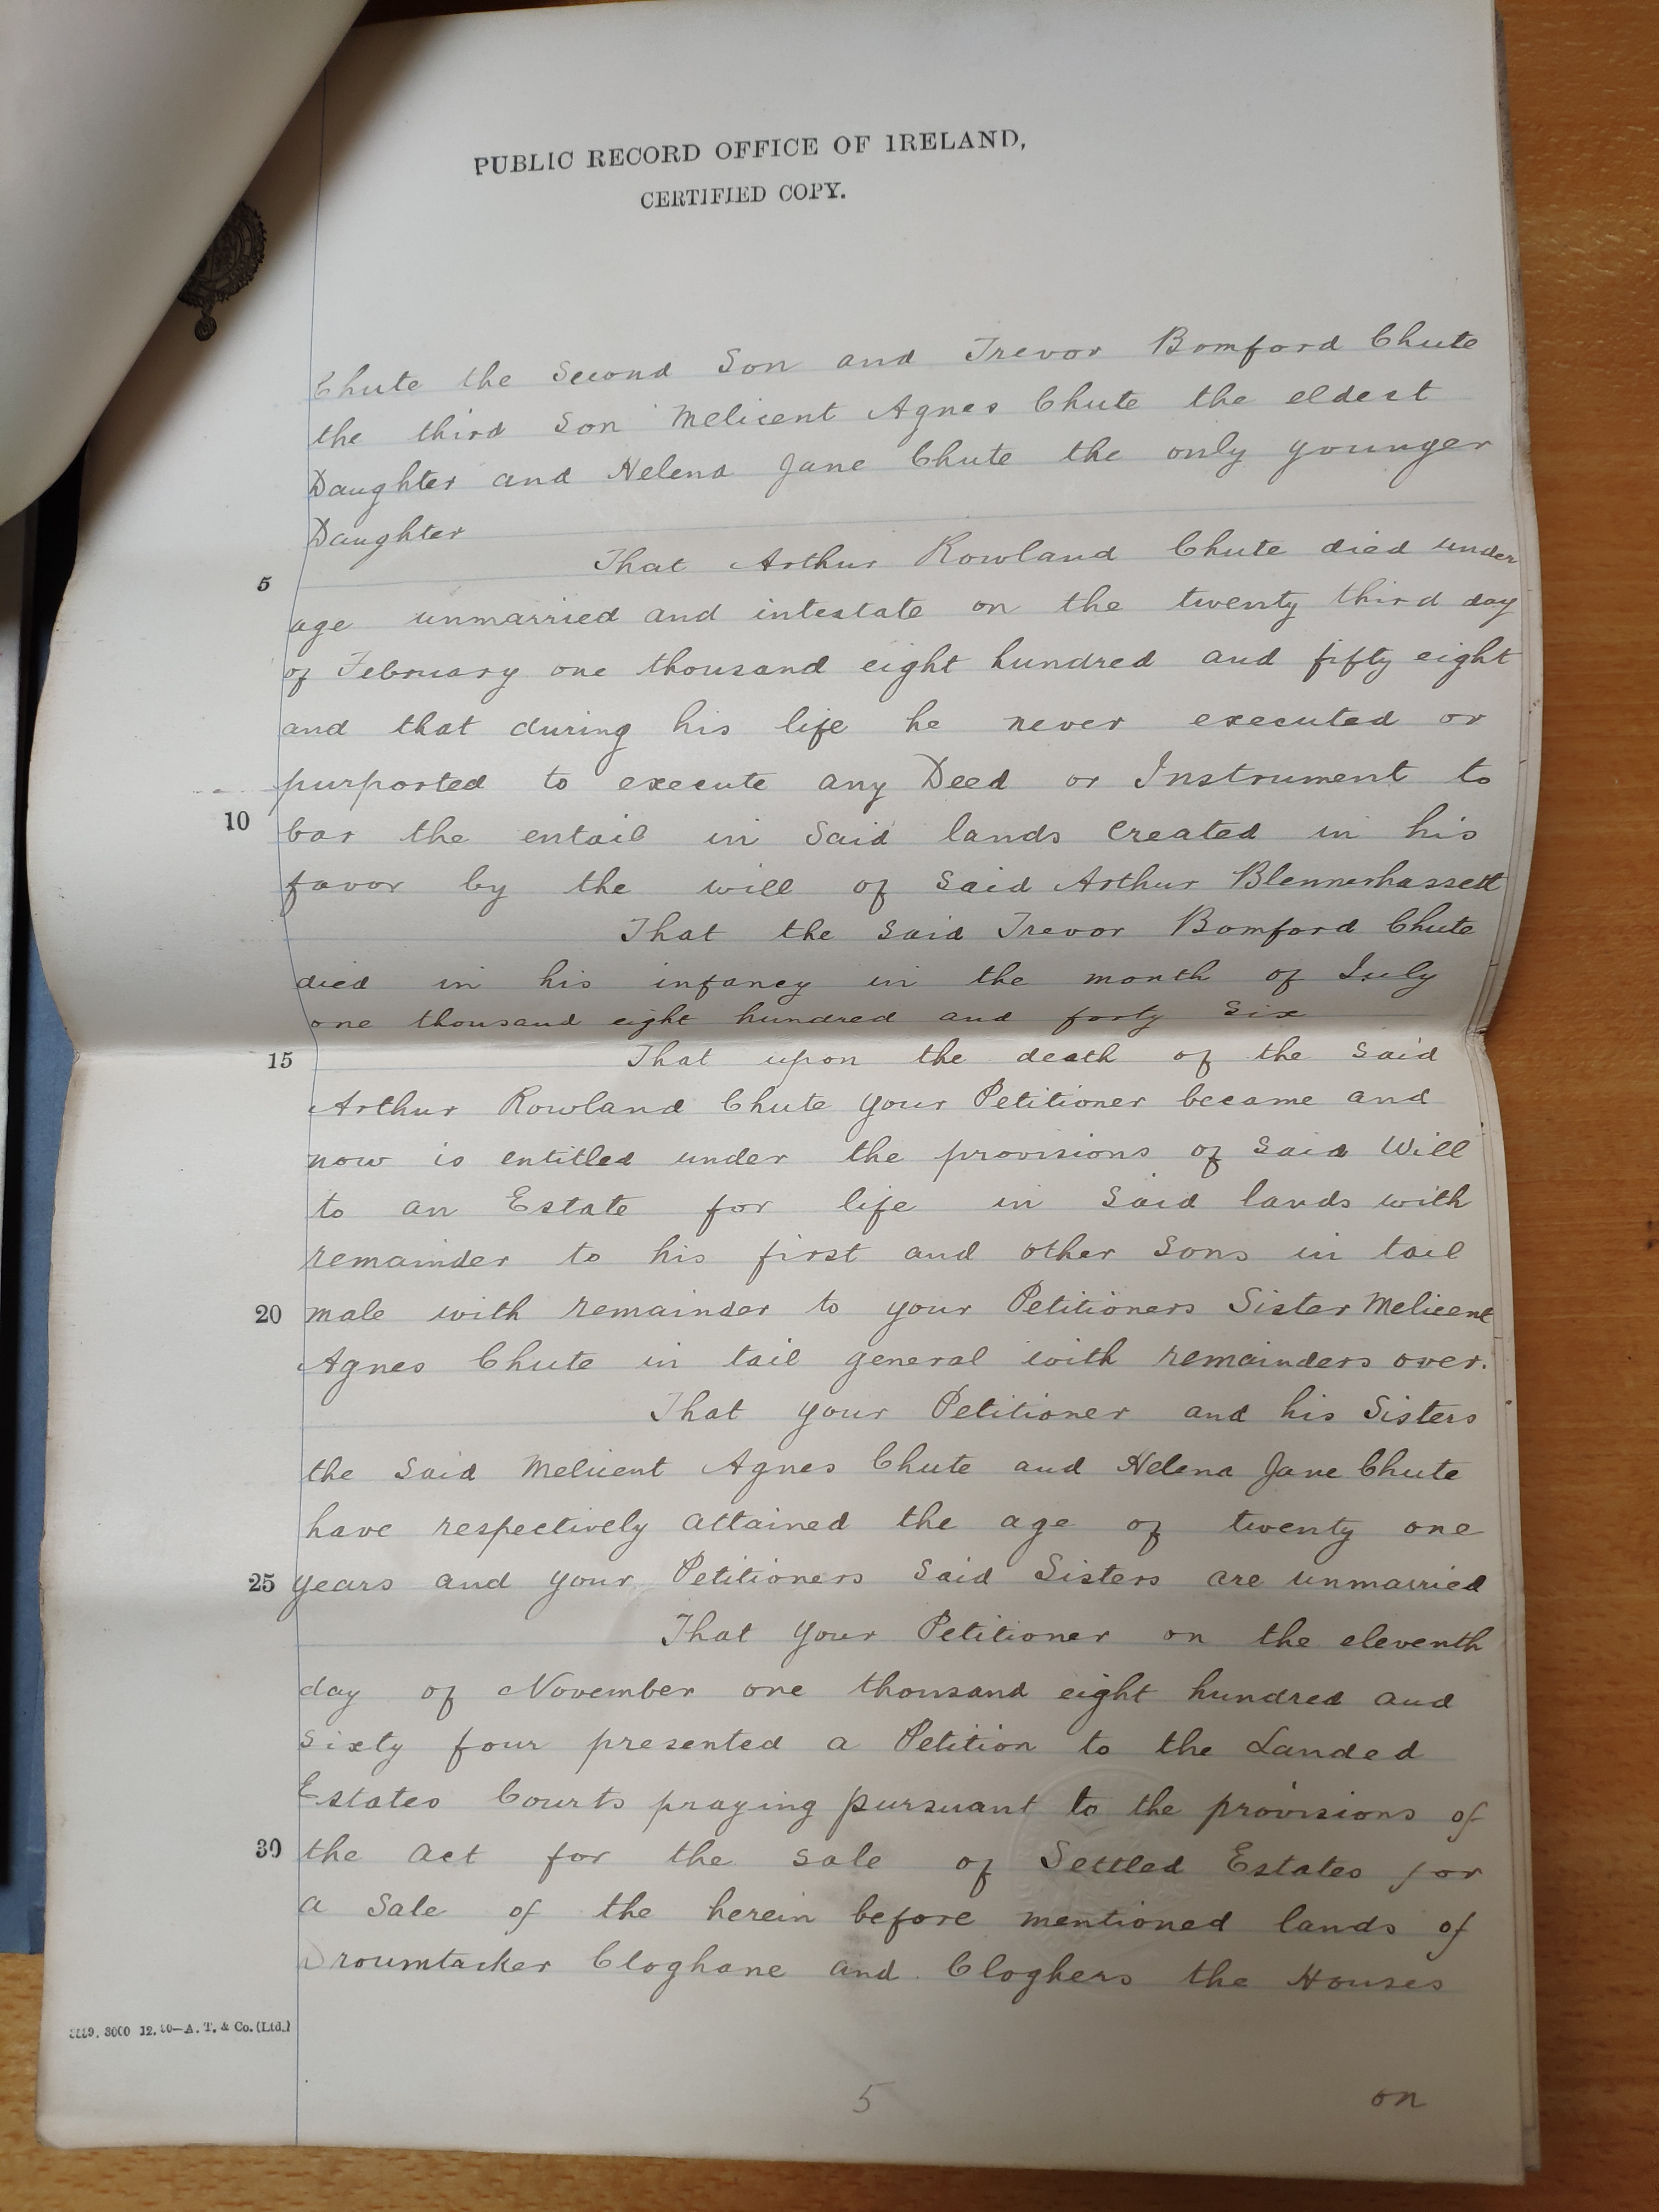 PUBLIC RECORD OFFICE OF IRELAND,
CERTIFIED COPY.
Chute the Second Son and Trevor Bomford Chute
the third Son Melicent Agnes Chute the eldest
Daughter and Helena Jane Chute the only younger
Daughter
That Arthur Rowland Chute died under
5
age unmarried and intestate on the twenty third day
of February one thousand eight hundred and fifty eight
and that during his life he never executed or
purported to execute any Deed or Instrument to
10 bar the entail in Said lands created in his
favor by the will of Said Arthur Blennerhassett
That the Said Trevor Bomford Chute
died in his infancy in the month of July
one thousand eight hundred and forty Six
15 That upon the death of the Said
Arthur Rowland Chute your Petitioner became and
now is entitled under the provisions of Said Will
to an Estate for life in Said lands with
remainder to his first and other Sons in tail
20 male with remainder to your Petitioners Sister Melicent
Agnes Chute in tail general with remainders over.
That your Petitioner and his Sisters
the Said Melicent Agnes Chute and Helena Jane Chute
have respectively attained the age of twenty one
25 years and your Petitioners Said Sisters are unmarried
That your Petitioner on the eleventh
day of November one thousand eight hundred and
Sixty four presented a Petition to the Landed
Estates Courts praying pursuant to the provisions of
30 the Act for the Sale of Settled Estates for
a Sale of the herein before mentioned lands of
Droumtacker Cloghane and Cloghers the Houses
3000 12. A. T. & Co. (Ltd.)
5 on